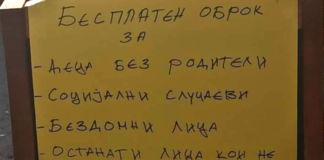 БЕСПЛАТЕН ОБРОК
ЗА
- ДЕЦА БЕЗ РОДИТЕЛИ
- СОЦИЈАЛНИ СЛУЧАЕВИ
- БЕЗДОМНИ ЛИЦА
- ОСТАНАТИ ЛИЦА КОИ НЕ